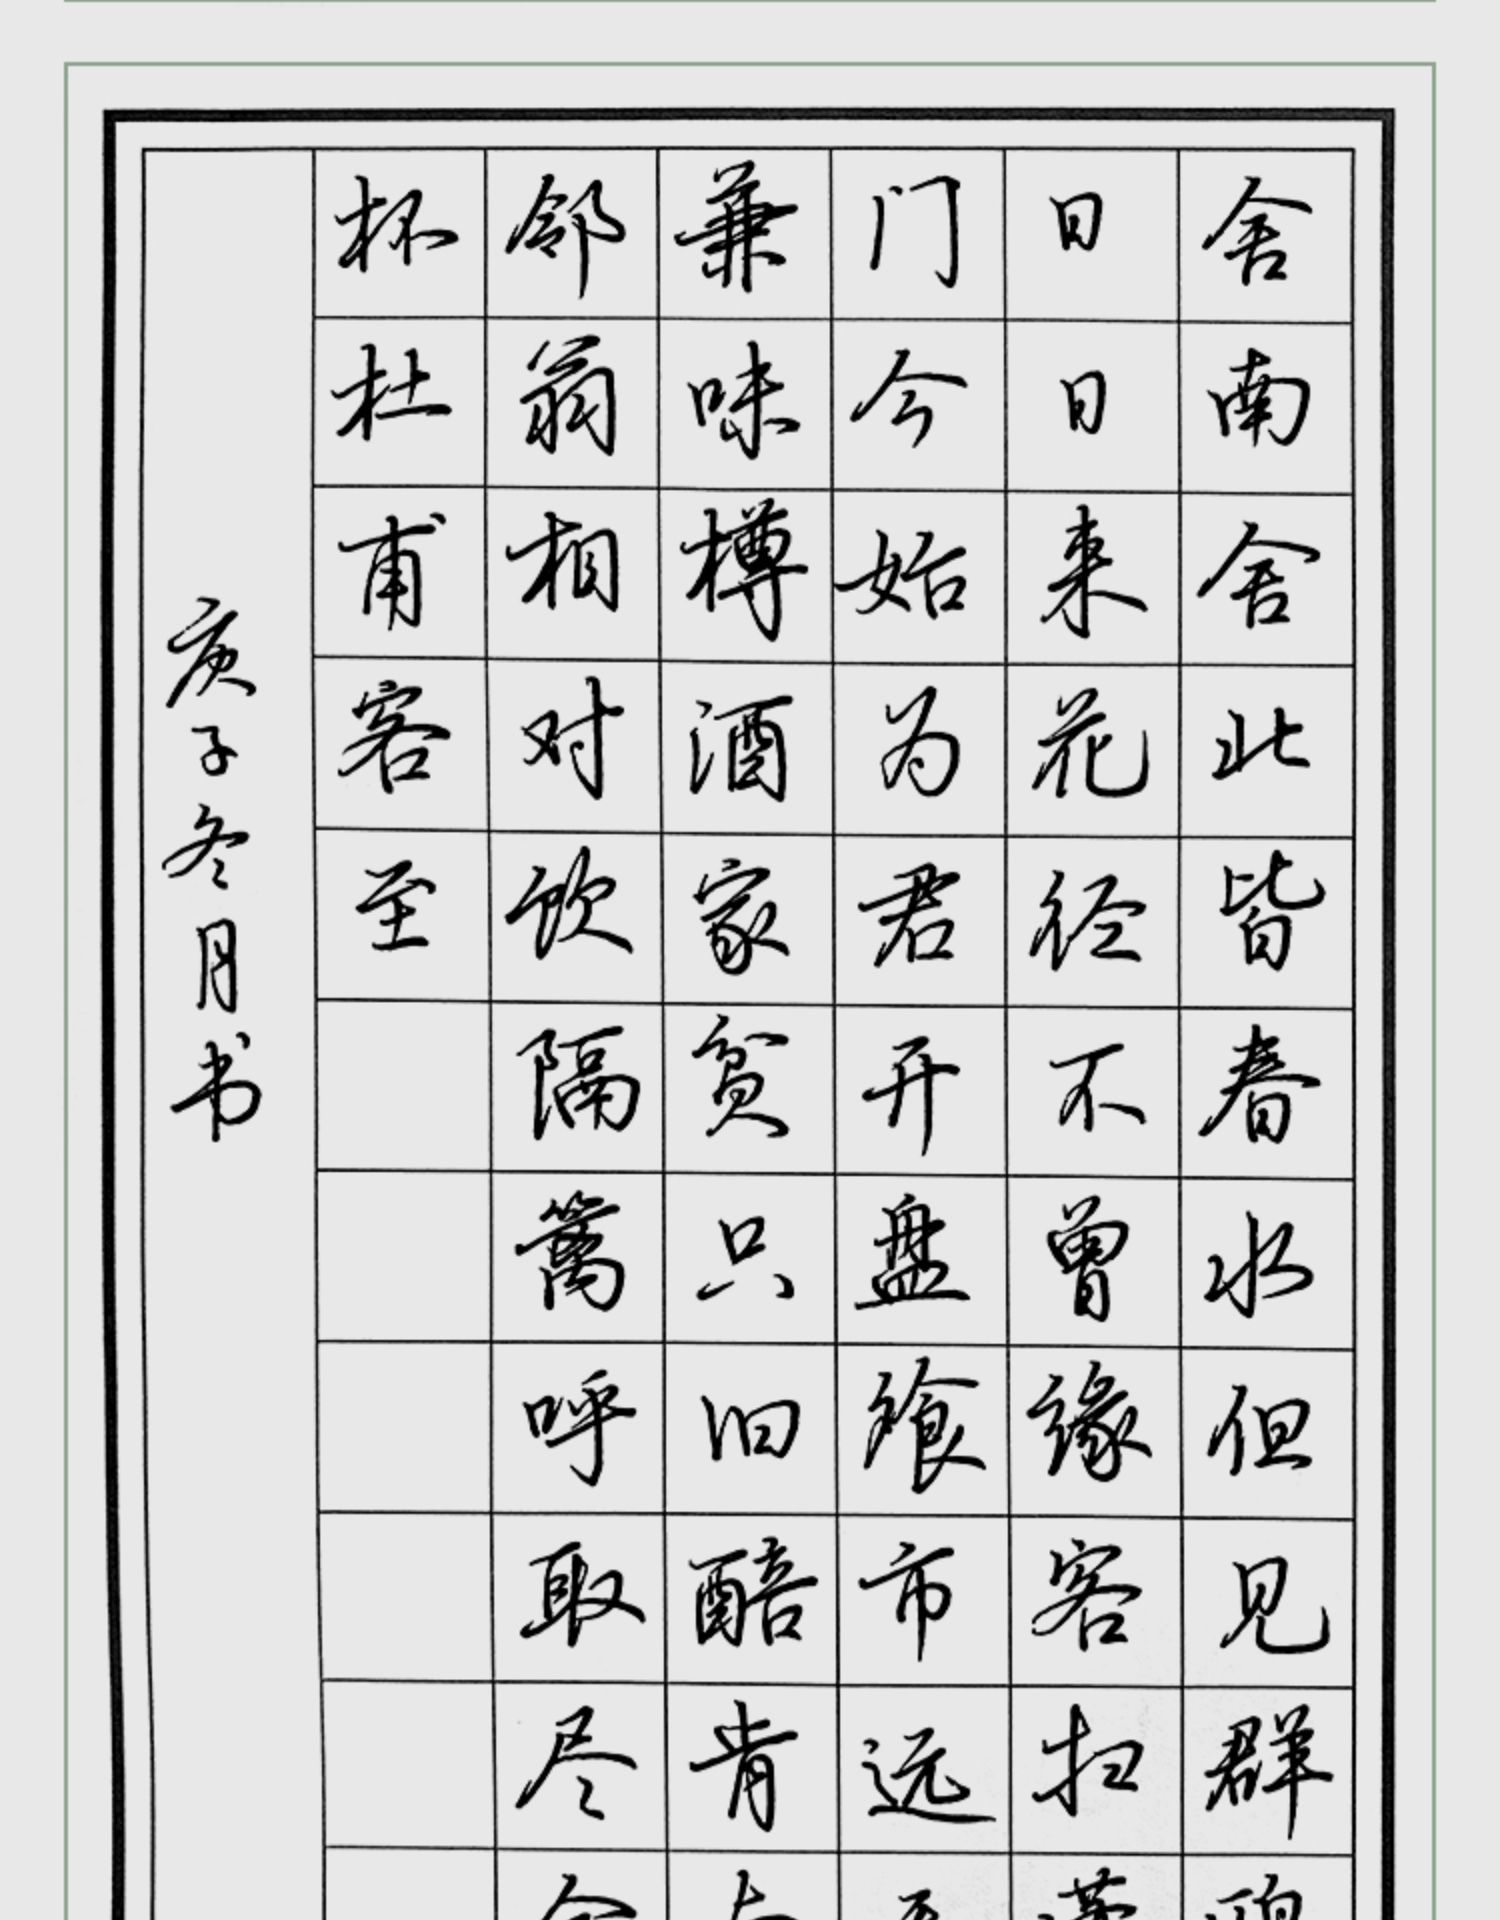 舍南舍北皆春水但见群
日日来花径不曾缘客扫
门今始为君开盘飧市远
兼味樽酒家贫只旧醅肯
邻翁相对饮隔篱呼取尽
杯杜甫客至
庚子冬月书